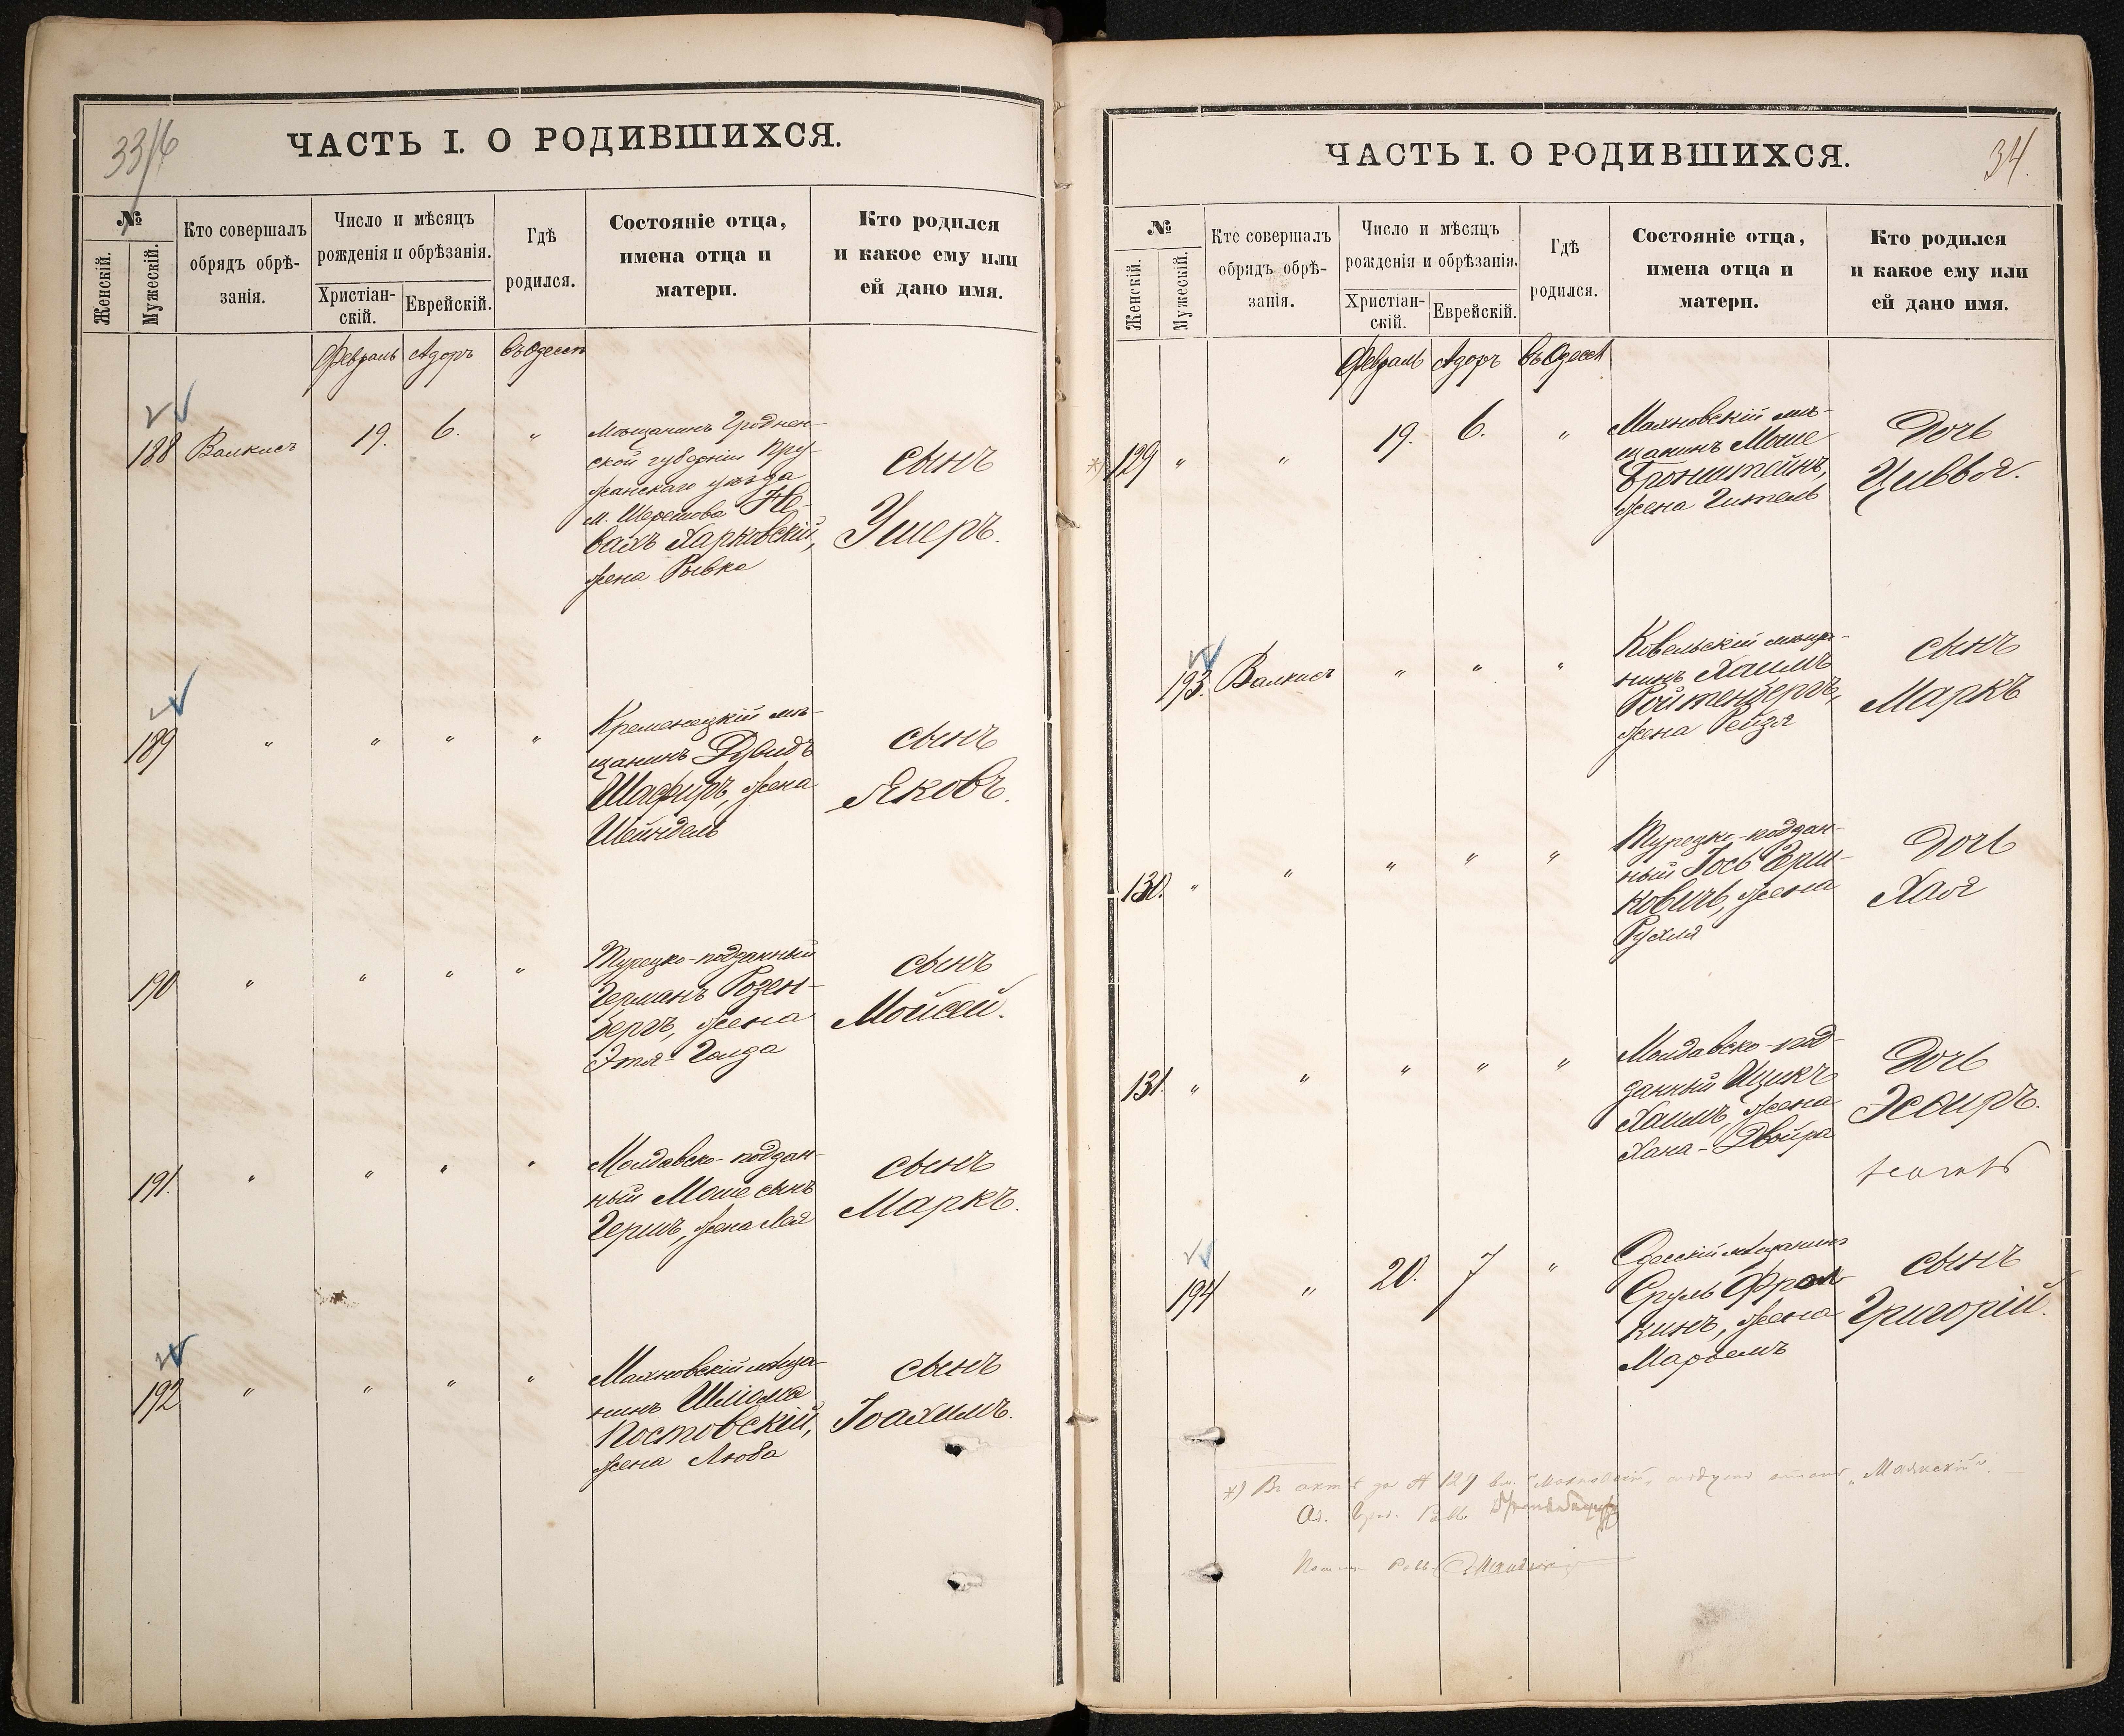 33/6
ЧАСТЬ I. О РОДИВШИХСЯ.
№
Женскій.
Мужескій.
Кто совершалъ
обрядъ обрѣ-
занія.
Число и мѣсяцъ
рожденія и обрѣзанія.
Христіан-
скій.
Еврейскій.
Гдѣ
родился.
Состояніе отца,
имена отца и
матери.
Кто родился
и какое ему или
ей дано имя.
Февраль Адоръ въ Одессѣ
188 Валкисъ 19. 6. "
Мѣщанинъ Гроднен-
ской губерніи Пру-
жанскаго уѣзда
м. Шерешова Не-
вахъ Харковскій,
жена Рывка
сынъ
Ушеръ.
189 " " " "
Кременецкій мѣ-
щанинъ Дувидъ
Шафиръ, жена
Шейндель
сынъ
Яковъ.
190 " " " "
Турецко-подданный
Германъ Розен-
бергъ, жена
Этя-Голда
сынъ
Мойсей.
191. " " " "
Молдавско-поддан-
ный Моше сынъ
Гершъ, жена Лея
сынъ
Маркъ.
192 " " " "
Махновскій мѣща-
нинъ Шліома
Постовскій,
жена Люба
сынъ
Іоахимъ.
34.
ЧАСТЬ I. О РОДИВШИХСЯ.
№
Женскій.
Мужескій.
Кто совершалъ
обрядъ обрѣ-
занія.
Число и мѣсяцъ
рожденія и обрѣзанія.
Христіан-
скій.
Еврейскій.
Гдѣ
родился.
Состояніе отца,
имена отца и
матери.
Кто родился
и какое ему или
ей дано имя.
Февраль Адоръ въ Одессѣ
*) 129 " " 19. 6. "
Махновскій мѣ-
щанинъ Моше
Бронштейнъ,
жена Гитель
Дочь
Цивья.
193. Валкисъ " " "
Ковельскій мѣща-
нинъ Хаимъ
Ройтенбергъ,
жена Рейзя
сынъ
Маркъ
130. " " " " "
Турецко-поддан-
ный Іось Герш-
ковичъ, жена
Рухля
Дочь
Хая
131. " " " " "
Молдавско-под-
данный Ицикъ
Хаимъ, жена
Хана-Двойра
Дочь
Эсѳиръ.
194 " 20. 7 "
Одесскій мѣщанинъ
Сруль Фрал-
кинъ, жена
Марьемъ
сынъ
Григорій.
*) Въ актѣ за № 129 вм. "Махновскій" слѣдуетъ "Маякскій".
Од. Гор. Равв.
Помощ. Равв.